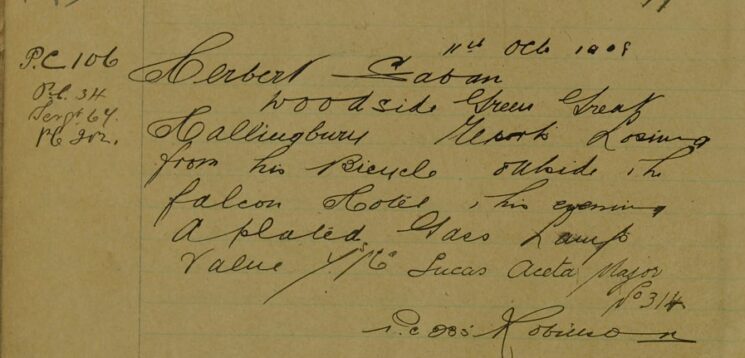 11th Oct 1909
P.C 106
P.C. 34
Sergt 64.
PC 202.
Herbert Caban
Woodside Green Great
Hallingbury Reports Losing
from his Bicycle outside the
Falcon Hotel this evening
A plated Gass Lamp
Value Lucas Aceta Major
No 314
P.C Robinson